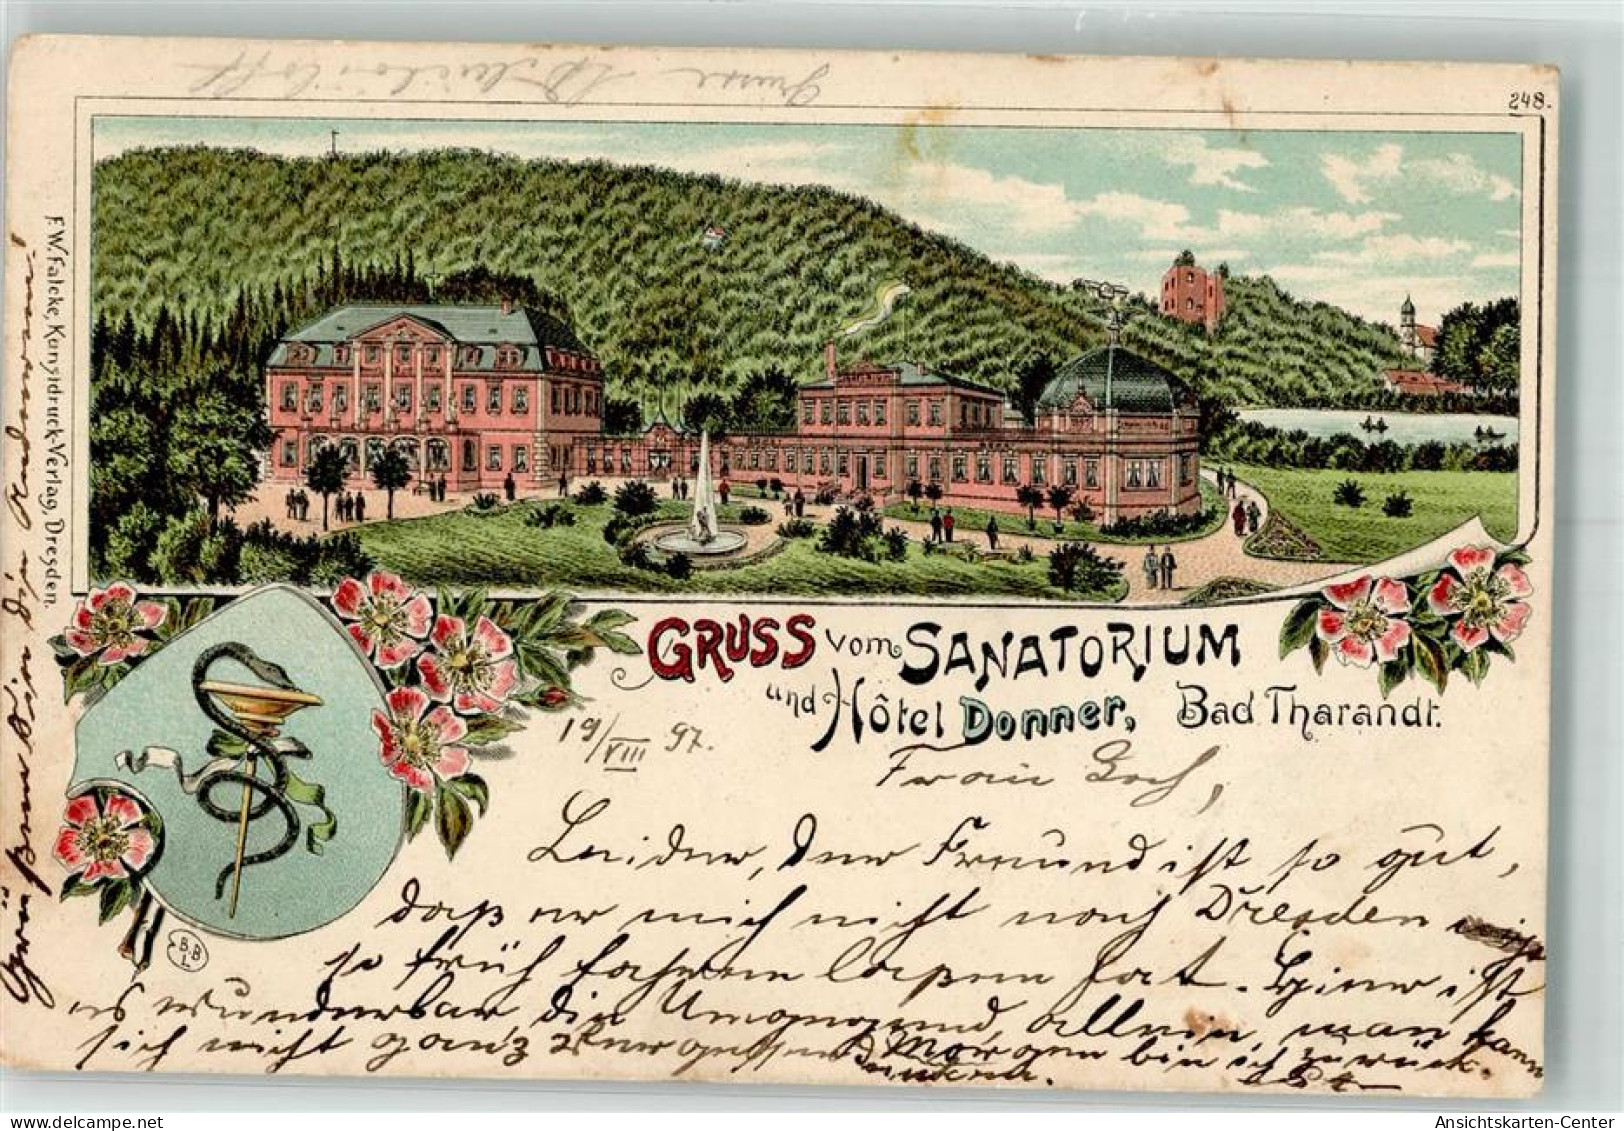 Grüsse
248.
F.W. Falcke, Kunstdruck-Verlag, Dresden.
GRUSS vom SANATORIUM
und Hôtel Donner, Bad Tharandt.
19/VIII 97.
BBL
Leider, der Freund ist so gut,
daß er mich nicht nach Dresden
so früh fahren laßen hat. Hier ist
es wunderbar die Umgegend, allein, man kann
sich nicht ganz Morgen bin ich zurück.
Grüßen die Anderen!
Ansichtskarten-Center